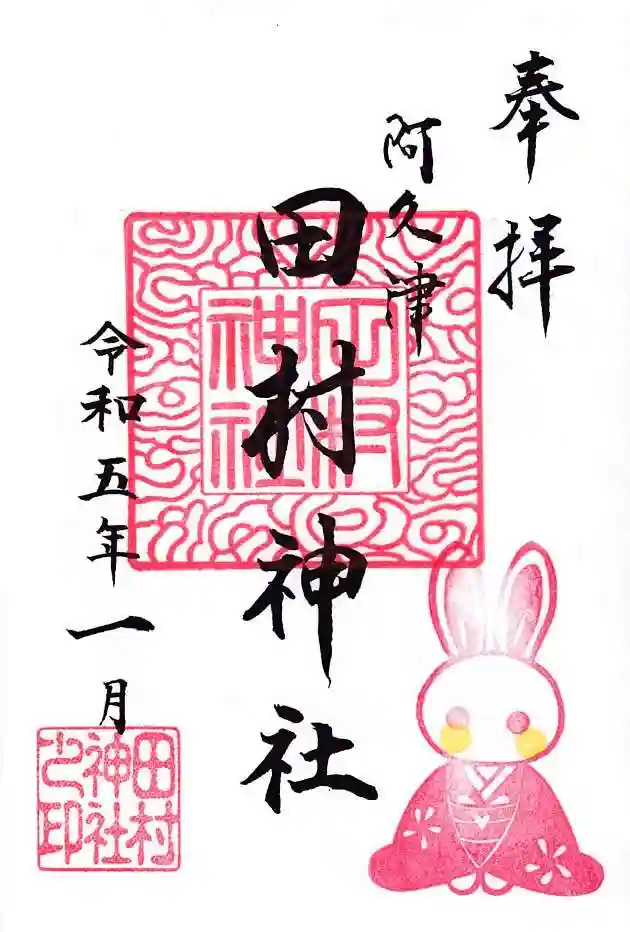 奉拝
阿久津
田村神社
令和五年一月
田村
神社
之印